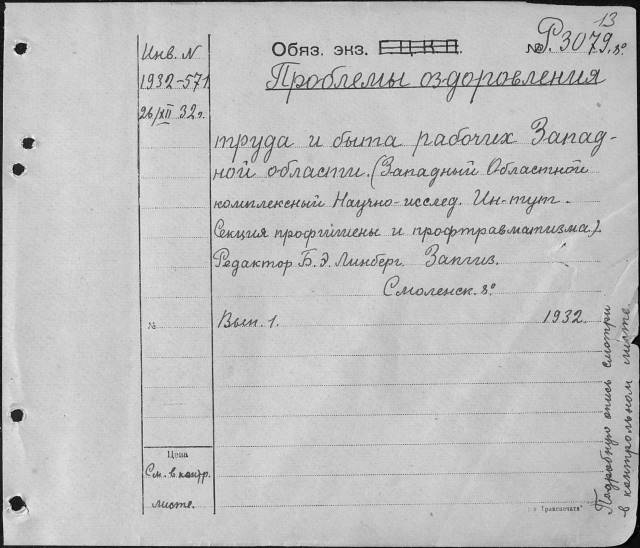 13
Инв. N
1932-571
26/XII 32 г.
Обяз. экз. Е.Ц.К.П. № Р.3079, 8º
Проблемы оздоровления
труда и быта рабочих Запад-
ной области. (Западный Областной
комплексный Научно-исслед. Ин-тут.
Секция профгигиены и профтравматизма).
Редактор Б. Э. Линберг. Запгиз.
Смоленск. 8º
№ Вып. 1. 1932.
Цена
См. в контр.
листе.
Подробную опись смотри
в контрольном листе.
Транспечать"